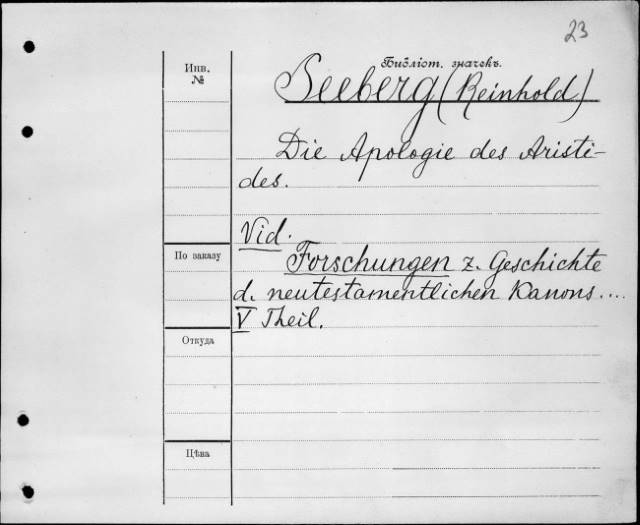 23
Инв.
№
Библіот. значекъ.
Seeberg (Reinhold)
Die Apologie des Aristi-
des.
Vid.
По заказу
Forschungen z. Geschichte
d. neutestamentlichen Kanons....
V Theil.
Откуда
Цѣна